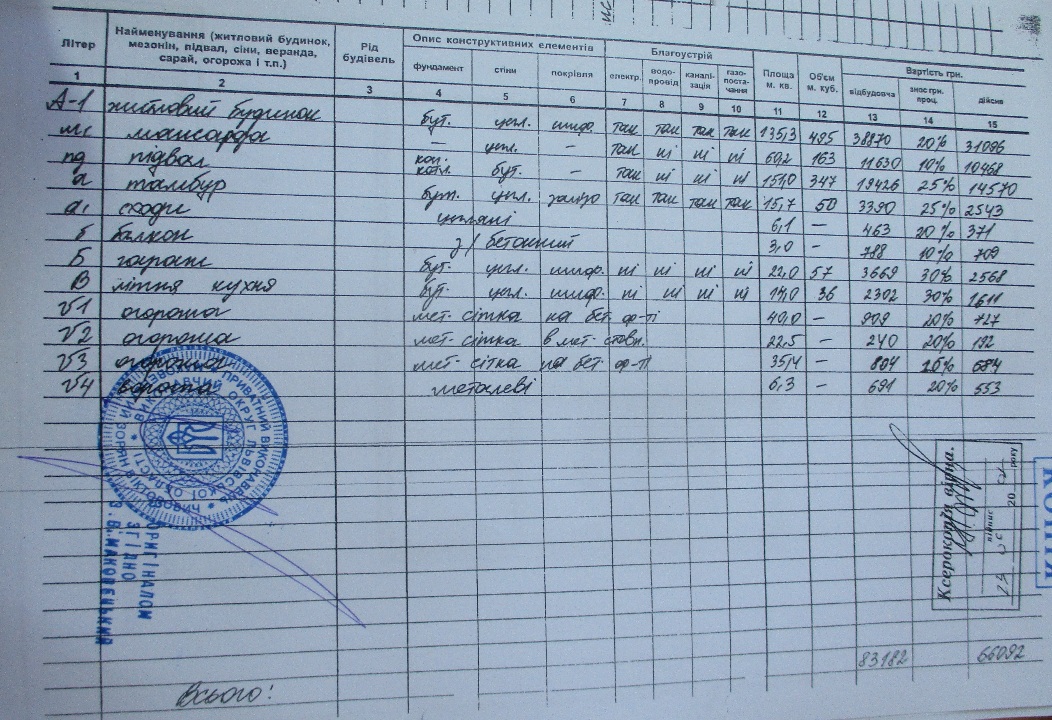 Літер Найменування (житловий будинок, мезонін, підвал, сіни, веранда, сарай, огорожа і т.п.) Рід будівель Опис конструктивних елементів Благоустрій Площа м. кв. Об'єм м. куб. Вартість грн.
фундамент стіни покрівля електр. водопровід каналізація газопостачання відбудовча знос грн. проц. дійсна
1 2 3 4 5 6 7 8 9 10 11 12 13 14 15
А-1 житловий будинок бут. цегл. шиф. так так так так 135,3 495 38870 20% 31096
мс мансарда — цегл. — так ні ні ні 60,2 163 11630 10% 10468
пд підвал бут. — так ні ні ні 151,0 347 19426 25% 14570
а тамбур бут. цегл. залізо так так так так 15,7 50 3390 25% 2543
а1 сходи цегляні 6,1 — 463 20% 371
б балкон з/бетонний 3,0 - 788 10% 709
Б гараж бут. цегл. шиф. ні ні ні ні 22,0 57 3669 30% 2568
В літня кухня бут. цегл. шиф. ні ні ні ні 14,0 36 2302 30% 1611
√1 огорожа мет. сітка на бет. ф-ті 40,0 — 909 20% 727
√2 огорожа мет. сітка в мет. стовп. 22,5 — 240 20% 192
√3 огорожа мет. сітка на бет. ф-ті 35,4 — 804 15% 684
√4 ворота металеві 6,3 — 691 20% 553
ПРИВАТНИЙ ВИКОНАВЕЦЬ
ВИКОНАВЧИЙ ОКРУГ ЛЬВІВСЬКОЇ ОБЛАСТІ
З ОРИГІНАЛОМ
ЗГІДНО
З.В.МАКОВЕЦЬКИЙ
Ксерокопія вірна.
підпис
20 року
КОПІЯ
83182 66092
Всього: